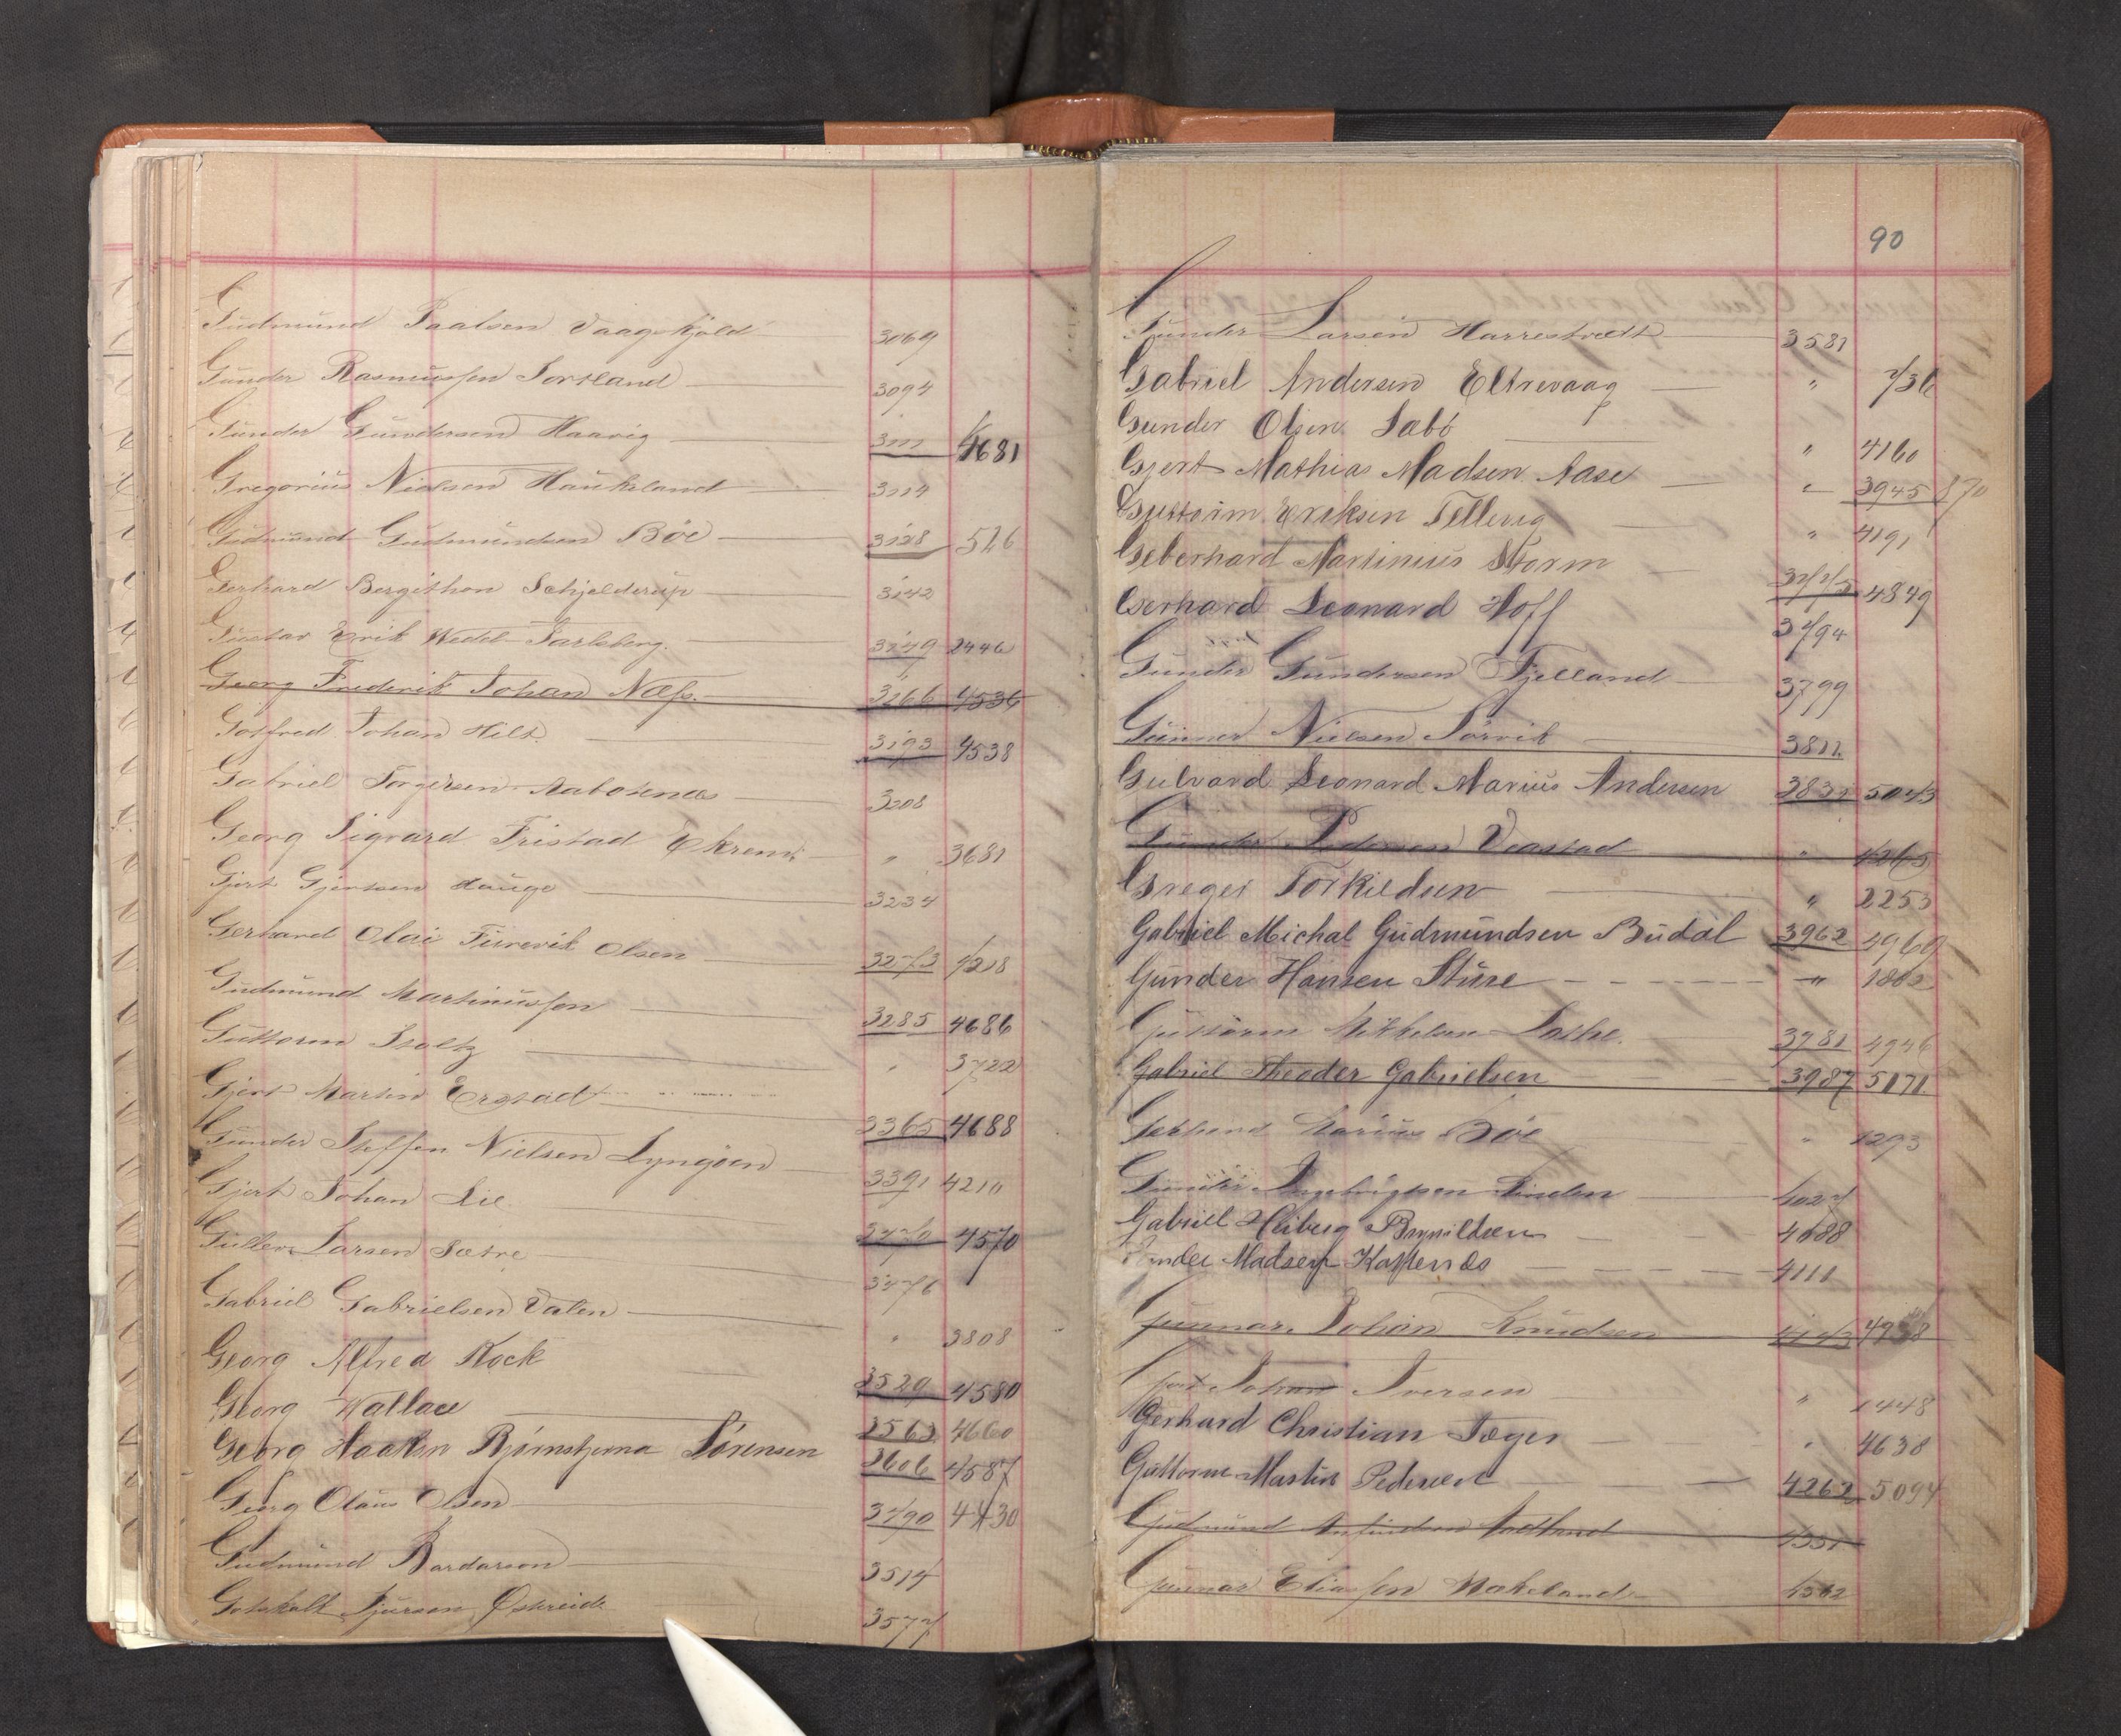 Gudmund Paalsen Vaagskjöld 3069
Gunder Rasmussen Sortland 3094
Gunder Gundersen Haavig 3111 4681
Gregorius Nielsen Haukeland 3114
Gudmund Gudmundsen Böe 3128 526
Gerhard Bergithon Schjelderup 3142
Gustav Erik Wedel Jarlsberg. 3149 2446
Georg Frederik Johan Næss. 3166 4536
Gotfred Johan Hilt. 3193 4538
Gabriel Torgersen 3208
Georg Sigvard Fristad Ekrem " 3681
Gjert Gjertsen Hauge 3234
Gerhard Olai Furevik Olsen 3273 4218
Gudmund Martinussen 3285 4686
Guttorm Stoltz " 3722
Gjert Martin Erstad 3365 4688
Gunder Steffen Nielsen Lyngöen 3391 4211
Gjert Johan Lie 4570
Larsen Sætre 3476
Gabriel Gabrielsen Valen " 3808
Georg Alfred Kock 3529 4580
Georg Wallace 3563 4660
Georg Haakon Bjørnstjerna Sørensen 3606 4587
Georg Olaus Olsen 3490 4430
Gudmund Bardarson 3514
Gotskalk Sjursen Østreide 3577
90
Gunder Larsen Harrestvedt 3581
Gabriel Andersen Eltrevaag " 736
Gunder Olsen Sæbö " 4160
Gjert Mathias Madsen Aase " 3945 870
Guttorm Eriksen Tellevig " 4191
Geberhard Martinius Storm 4849
Gerhard Leonard Hoff 3794
Gunder Gundersen Fjelland 3799
Gunner Nielsen Sörvik 3811
Gulvard Leonard Marius Andersen 5043
Gunder Pedersen Veastad " 4265
Greger Torkildsen " 2253
Gabriel Michal Gudmundsen Budal 3962 4960
Gunder Hansen Sture " 1862
Guttorm Mikkelsen 3981 4946
Gabriel Theodor Gabrielsen 3987 5171
Marius Böe " 1293
Gunder Ingebrigtsen Linden 4027
Gabriel Heiberg Brynildsen 4088
Gunder Madsen Kastenes 4111
Gunnar Johan Knudsen
Gjert Johan Iversen " 1448
Gerhard Christian Jæger " 4638
Guttorm Martin Pedersen 4262 5094
Gudmund 4331
Gunnar Eliassen Mokeland 4362